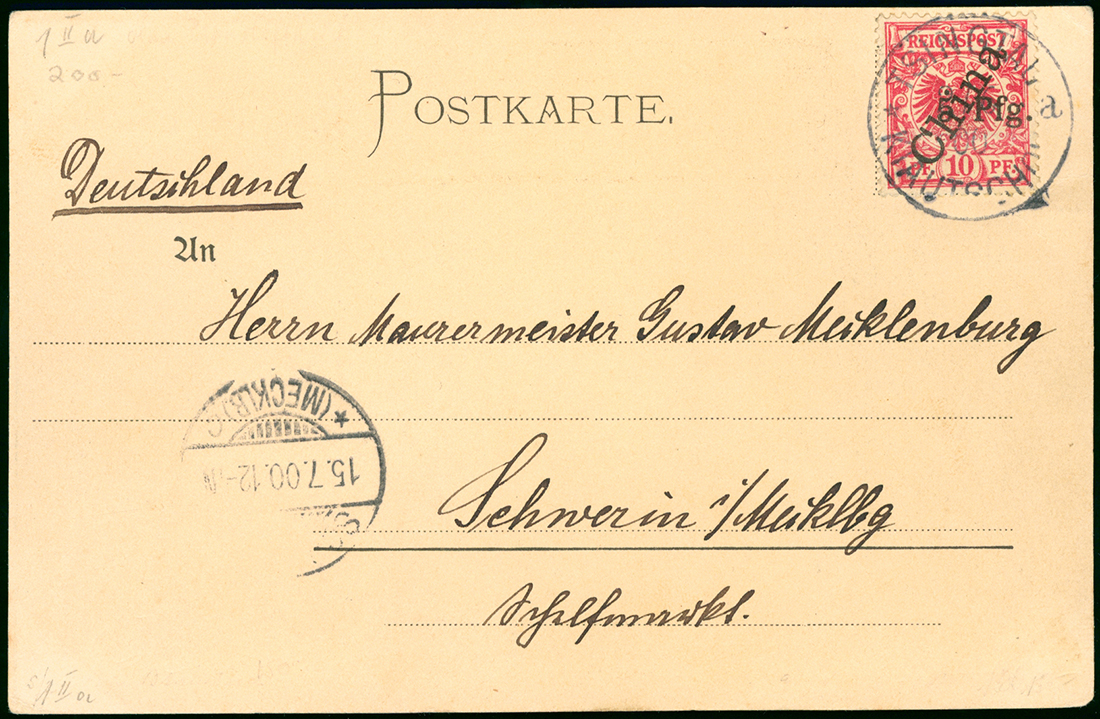 1 II a
200-
POSTKARTE.
REICHSPOST
China
5 Pfg.
PF. 10 PF.
TSINGTAU a
* KIAUTSCHOU
Deutschland
An
Herrn Maurermeister Gustav Mecklenburg
* (MECKLB)
15.7.00.12-1N
Schwerin i/Mecklbg
Schelfmarkt.
5/1 II a